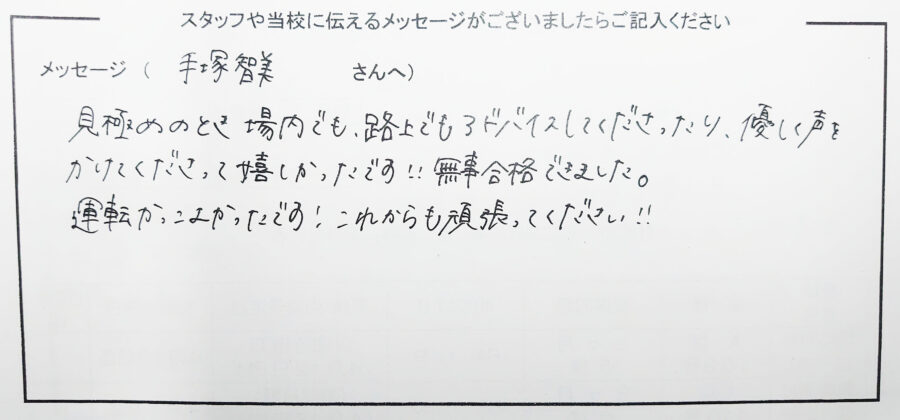 スタッフや当校に伝えるメッセージがございましたらご記入ください
メッセージ ( 手塚智美 さんへ)
見極めのとき場内でも、路上でもアドバイスしてくださったり、優しく声を
かけてくださって嬉しかったです!!無事合格できました。
運転かっこよかったです!これからも頑張ってください!!